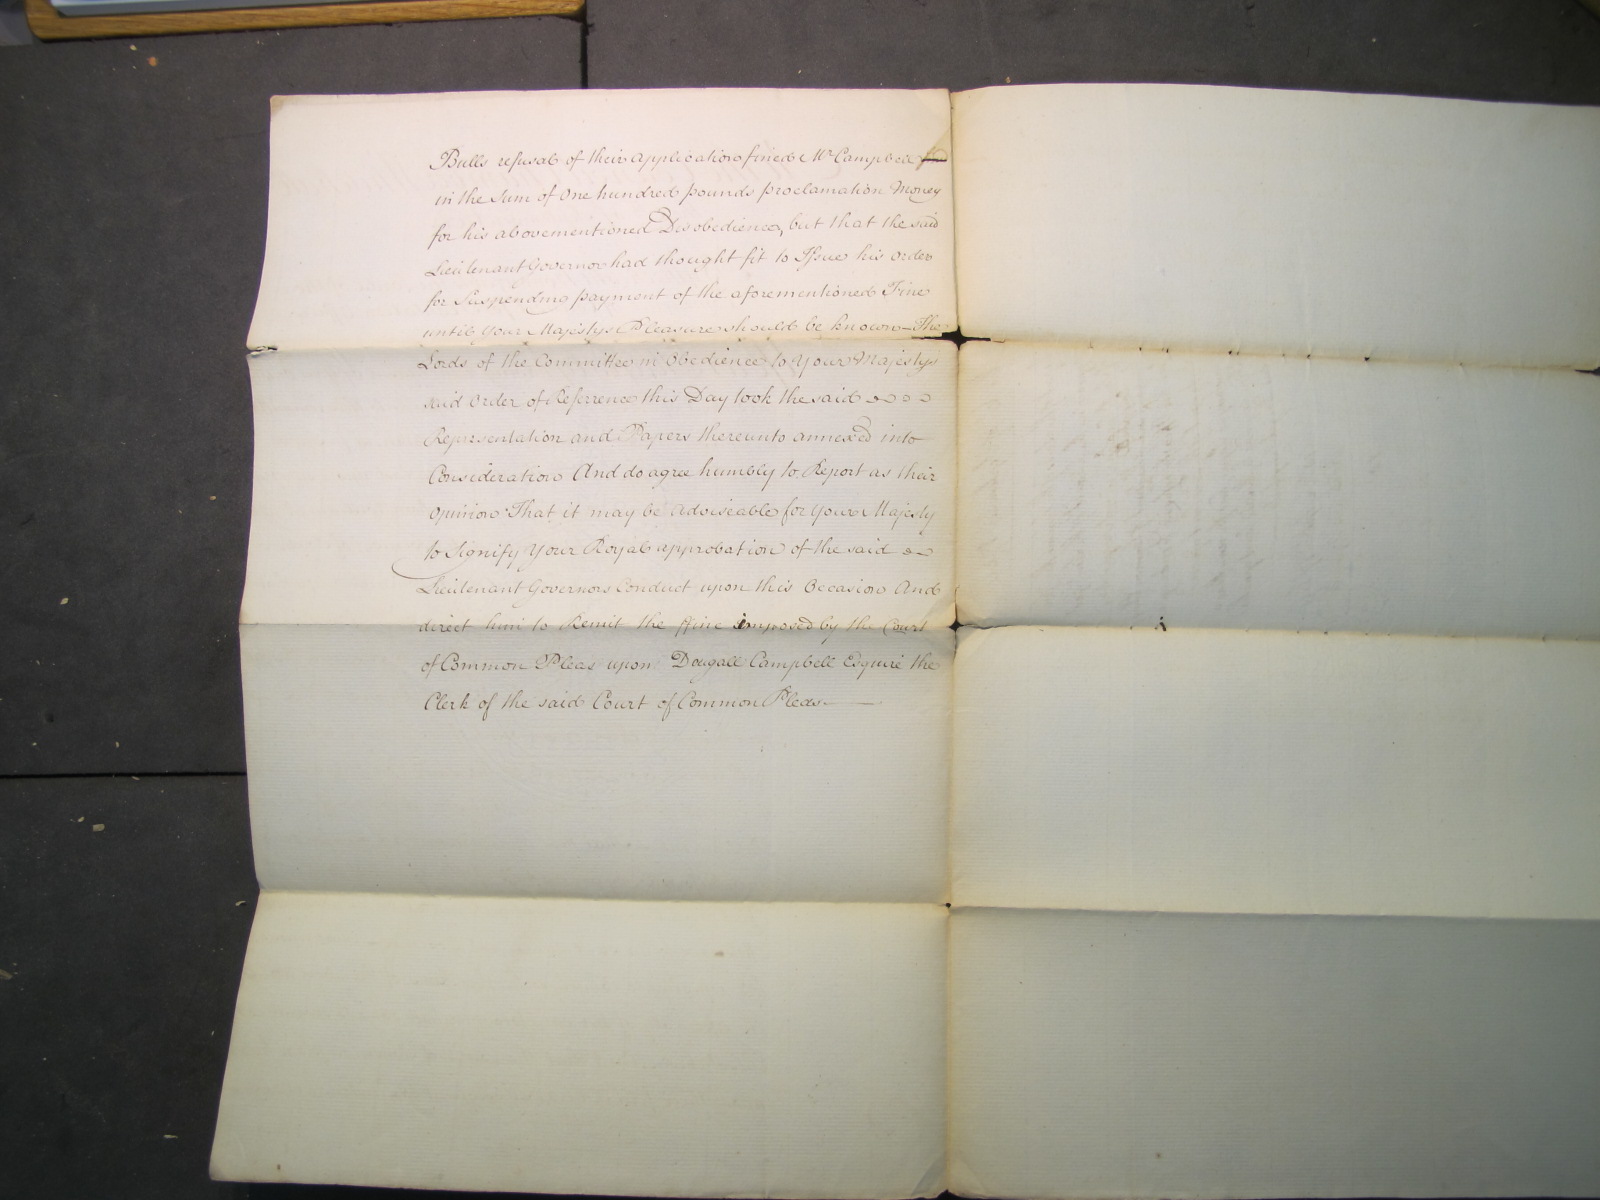 Bulls refusal of their application fined Mr Campbell
in the Sum of One hundred pounds proclamation Money
for his abovementioned Disobedience, but that the said
Lieutenant Governor had thought fit to Issue his Order
for Suspending payment of the aforementioned Fine
until Your Majestys Pleasure should be known — The
Lords of the Committee in Obedience to Your Majestys
said Order of Reference this Day took the said
Representation and Papers thereunto annexed into
Consideration And do agree humbly to Report as their
Opinion That it may be Adviseable for Your Majesty
to Signify Your Royal approbation of the said
Lieutenant Governors Conduct upon this Occasion And
direct him to Remit the ffine imposed by the Court
of Common Pleas upon Dougall Campbell Esquire the
Clerk of the said Court of Common Pleas —